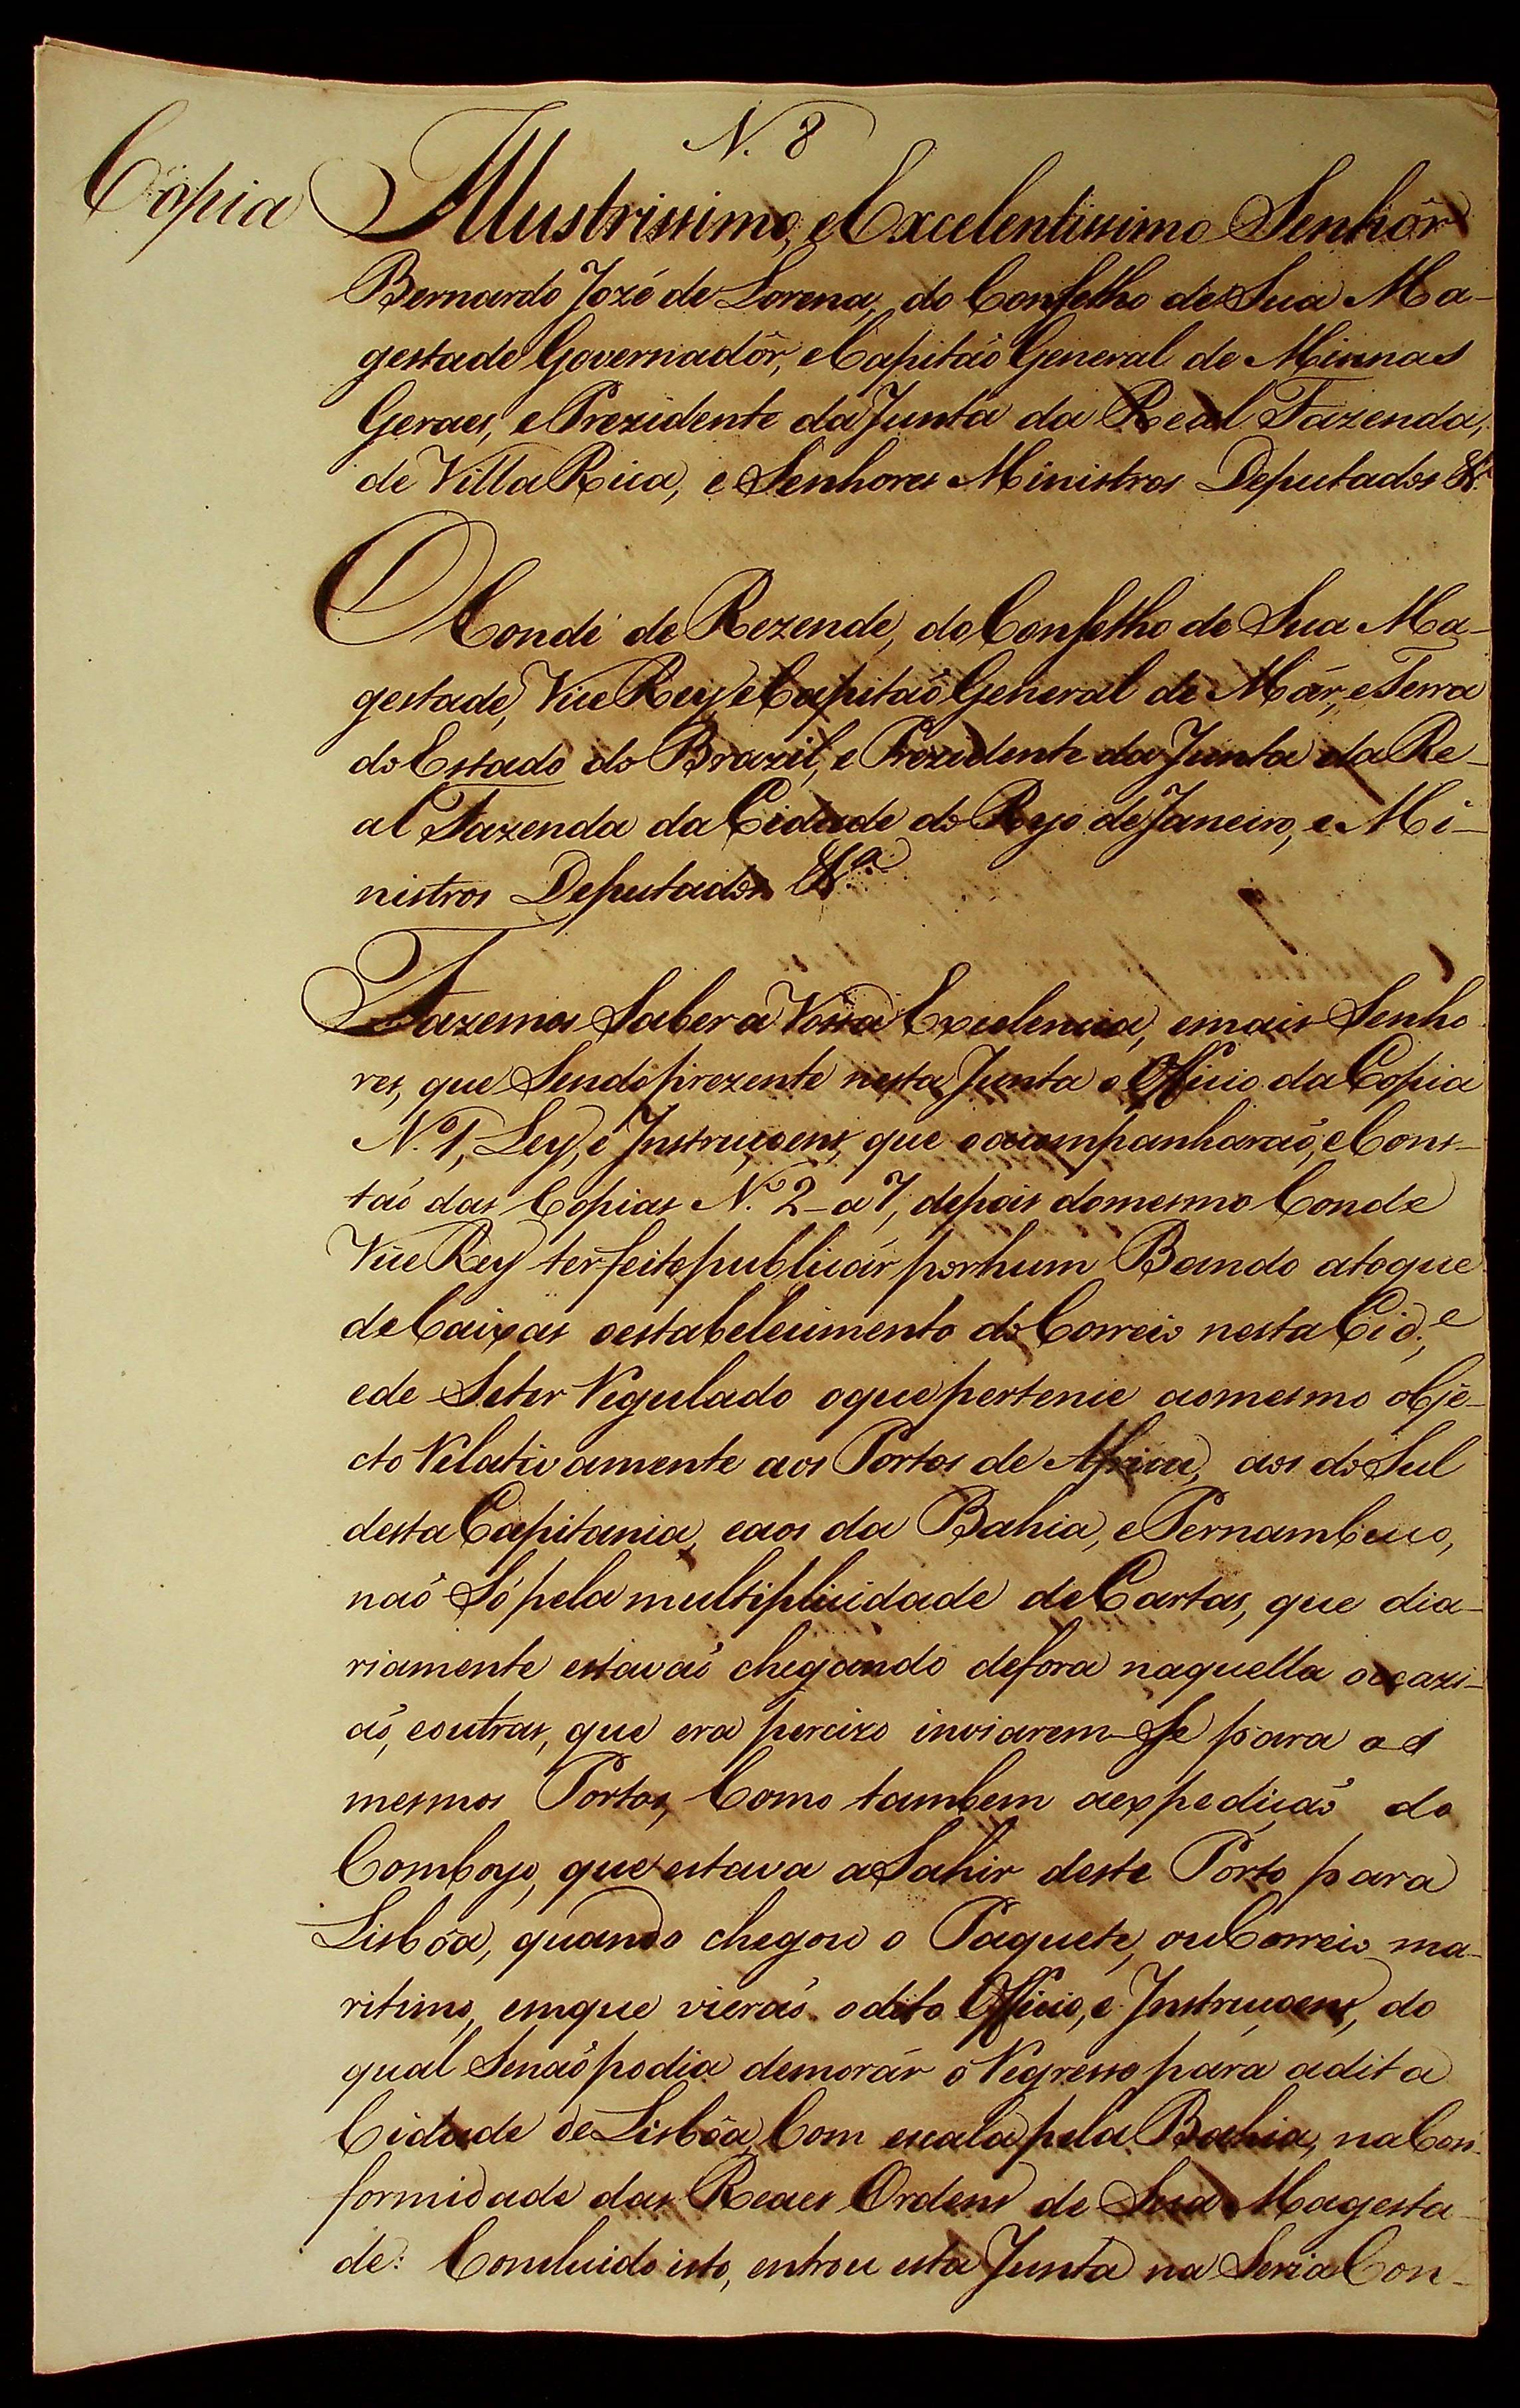 N. 8
Copia Illustrissimo, e Excelentissimo Senhôr
Bernardo Jozé de Lorena, do Conselho de Sua Ma-
gestade Governadôr, e Capitaõ General de Minnas
Geraes, e Prezidente da Junta da Real Fazenda,
de Villa Rica, e Senhores Ministros Deputados &.ª
O Conde de Rezende, do Conselho de Sua Ma-
gestade, Vice Rey, e Capitaõ General de Már, e Terra
do Estado do Brazil, e Prezidente da Junta da Re-
al Fazenda da Cidade do Ryo de Janeiro, e Mi-
nistros Deputados &.ª
Fazemos Saber a Vossa Excelencia, e mais Senho
res, que Sendo prezente nesta Junta o Officio da Copia
N.º 1, Ley, e Instruçoens, que o acompanharaõ, e Cons-
taõ das Copias N.º 2 - a 7, depois do mesmo Conde
Vice Rey ter feito publicár por hum Bando a toque
de Caixas o estabelecimento do Correio nesta Cid.e,
e de Se ter Regulado o que pertence ao mesmo obje-
cto Relativamente aos Portos de Africa, aos do Sul
desta Capitania, e aos da Bahia, e Pernambuco,
naõ Só pela multiplicidade de Cartas, que dia-
riamente estavaõ chegando de fora naquella occazi-
aõ, e outras, que era percizo inviarem-Se para os
mesmos Portos, Como tambem a expediçaõ do
Comboyo, que estava a Sahir deste Porto para
Lisbôa, quando chegou o Paquete, ou Correio ma-
ritimo, em que vieraõ o dito Officio, e Instruçoens, do
qual Se naõ podia demorár o Regresso para a dita
Cidade de Lisbôa, Com escala pela Bahia, na Con-
formidade das Reaes Ordens de Sua Magesta-
de: Concluido isto, entrou esta Junta na Seria Con-